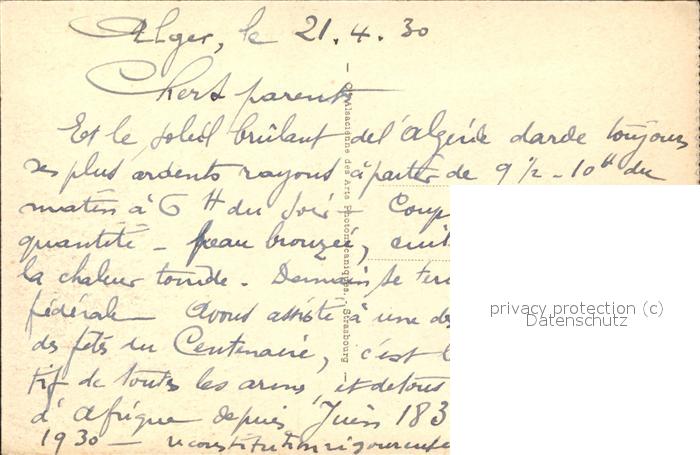 Alger, le 21.4.30
Chers parents
Et le soleil brûlant de l'Algérie darde toujours
ses plus ardents rayons à partir de 9 1/2 - 10 H du
matin à 6 H du soir - Coup
quantité - peau bronzée, cuite
la chaleur torride. Demain se
fédérale Avons assisté à une des
des fêtes du Centenaire, c'est
tif de toutes les armes, et de tous
d'Afrique depuis Juin 183
1930 - reconstitution rigoureuse
Cie Alsacienne des Arts Photomécaniques, Strasbourg
privacy protection (c)
Datenschutz